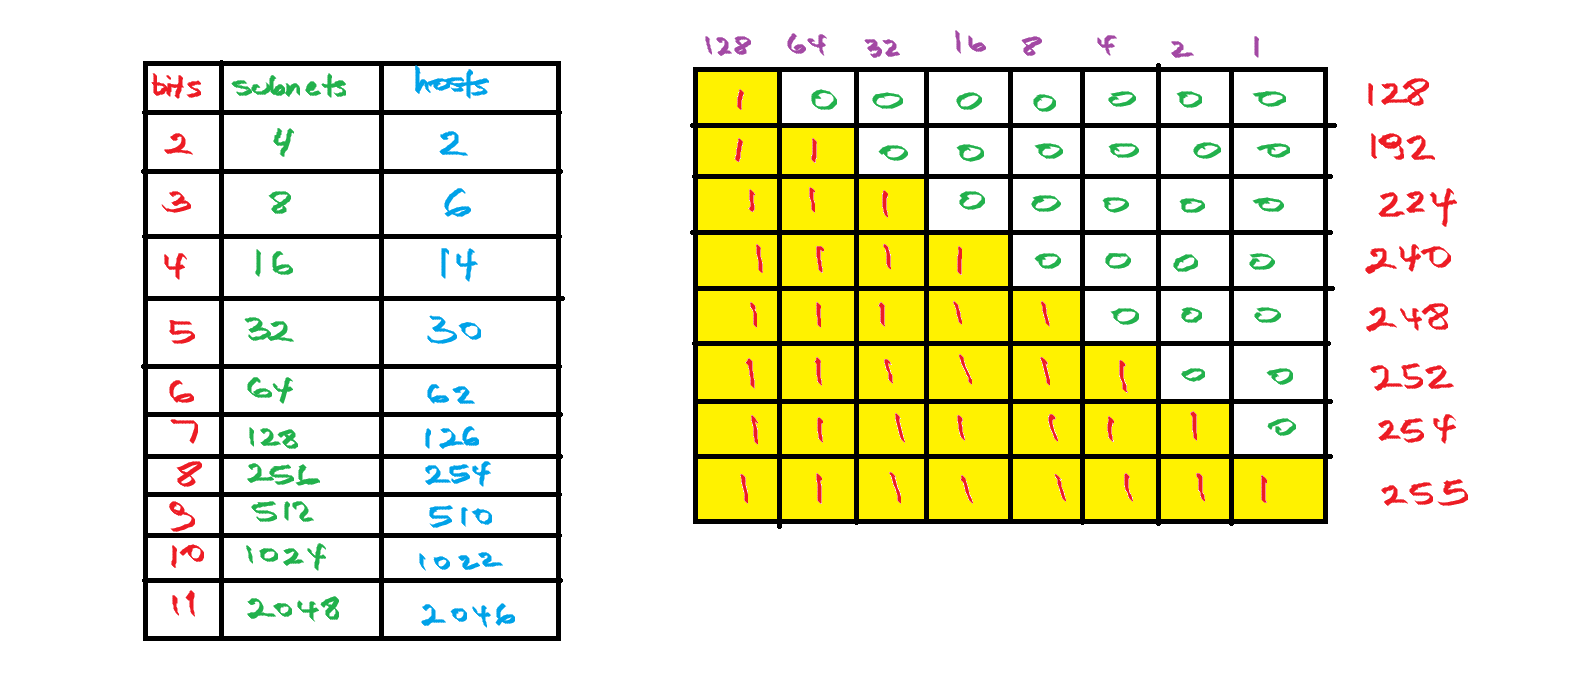 bits subnets hosts
2 4 2
3 8 6
4 16 14
5 32 30
6 64 62
7 128 126
8 256 254
9 512 510
10 1024 1022
11 2048 2046
128 64 32 16 8 4 2 1
1 0 0 0 0 0 0 0 128
1 1 0 0 0 0 0 0 192
1 1 1 0 0 0 0 0 224
1 1 1 1 0 0 0 0 240
1 1 1 1 1 0 0 0 248
1 1 1 1 1 1 0 0 252
1 1 1 1 1 1 1 0 254
1 1 1 1 1 1 1 1 255